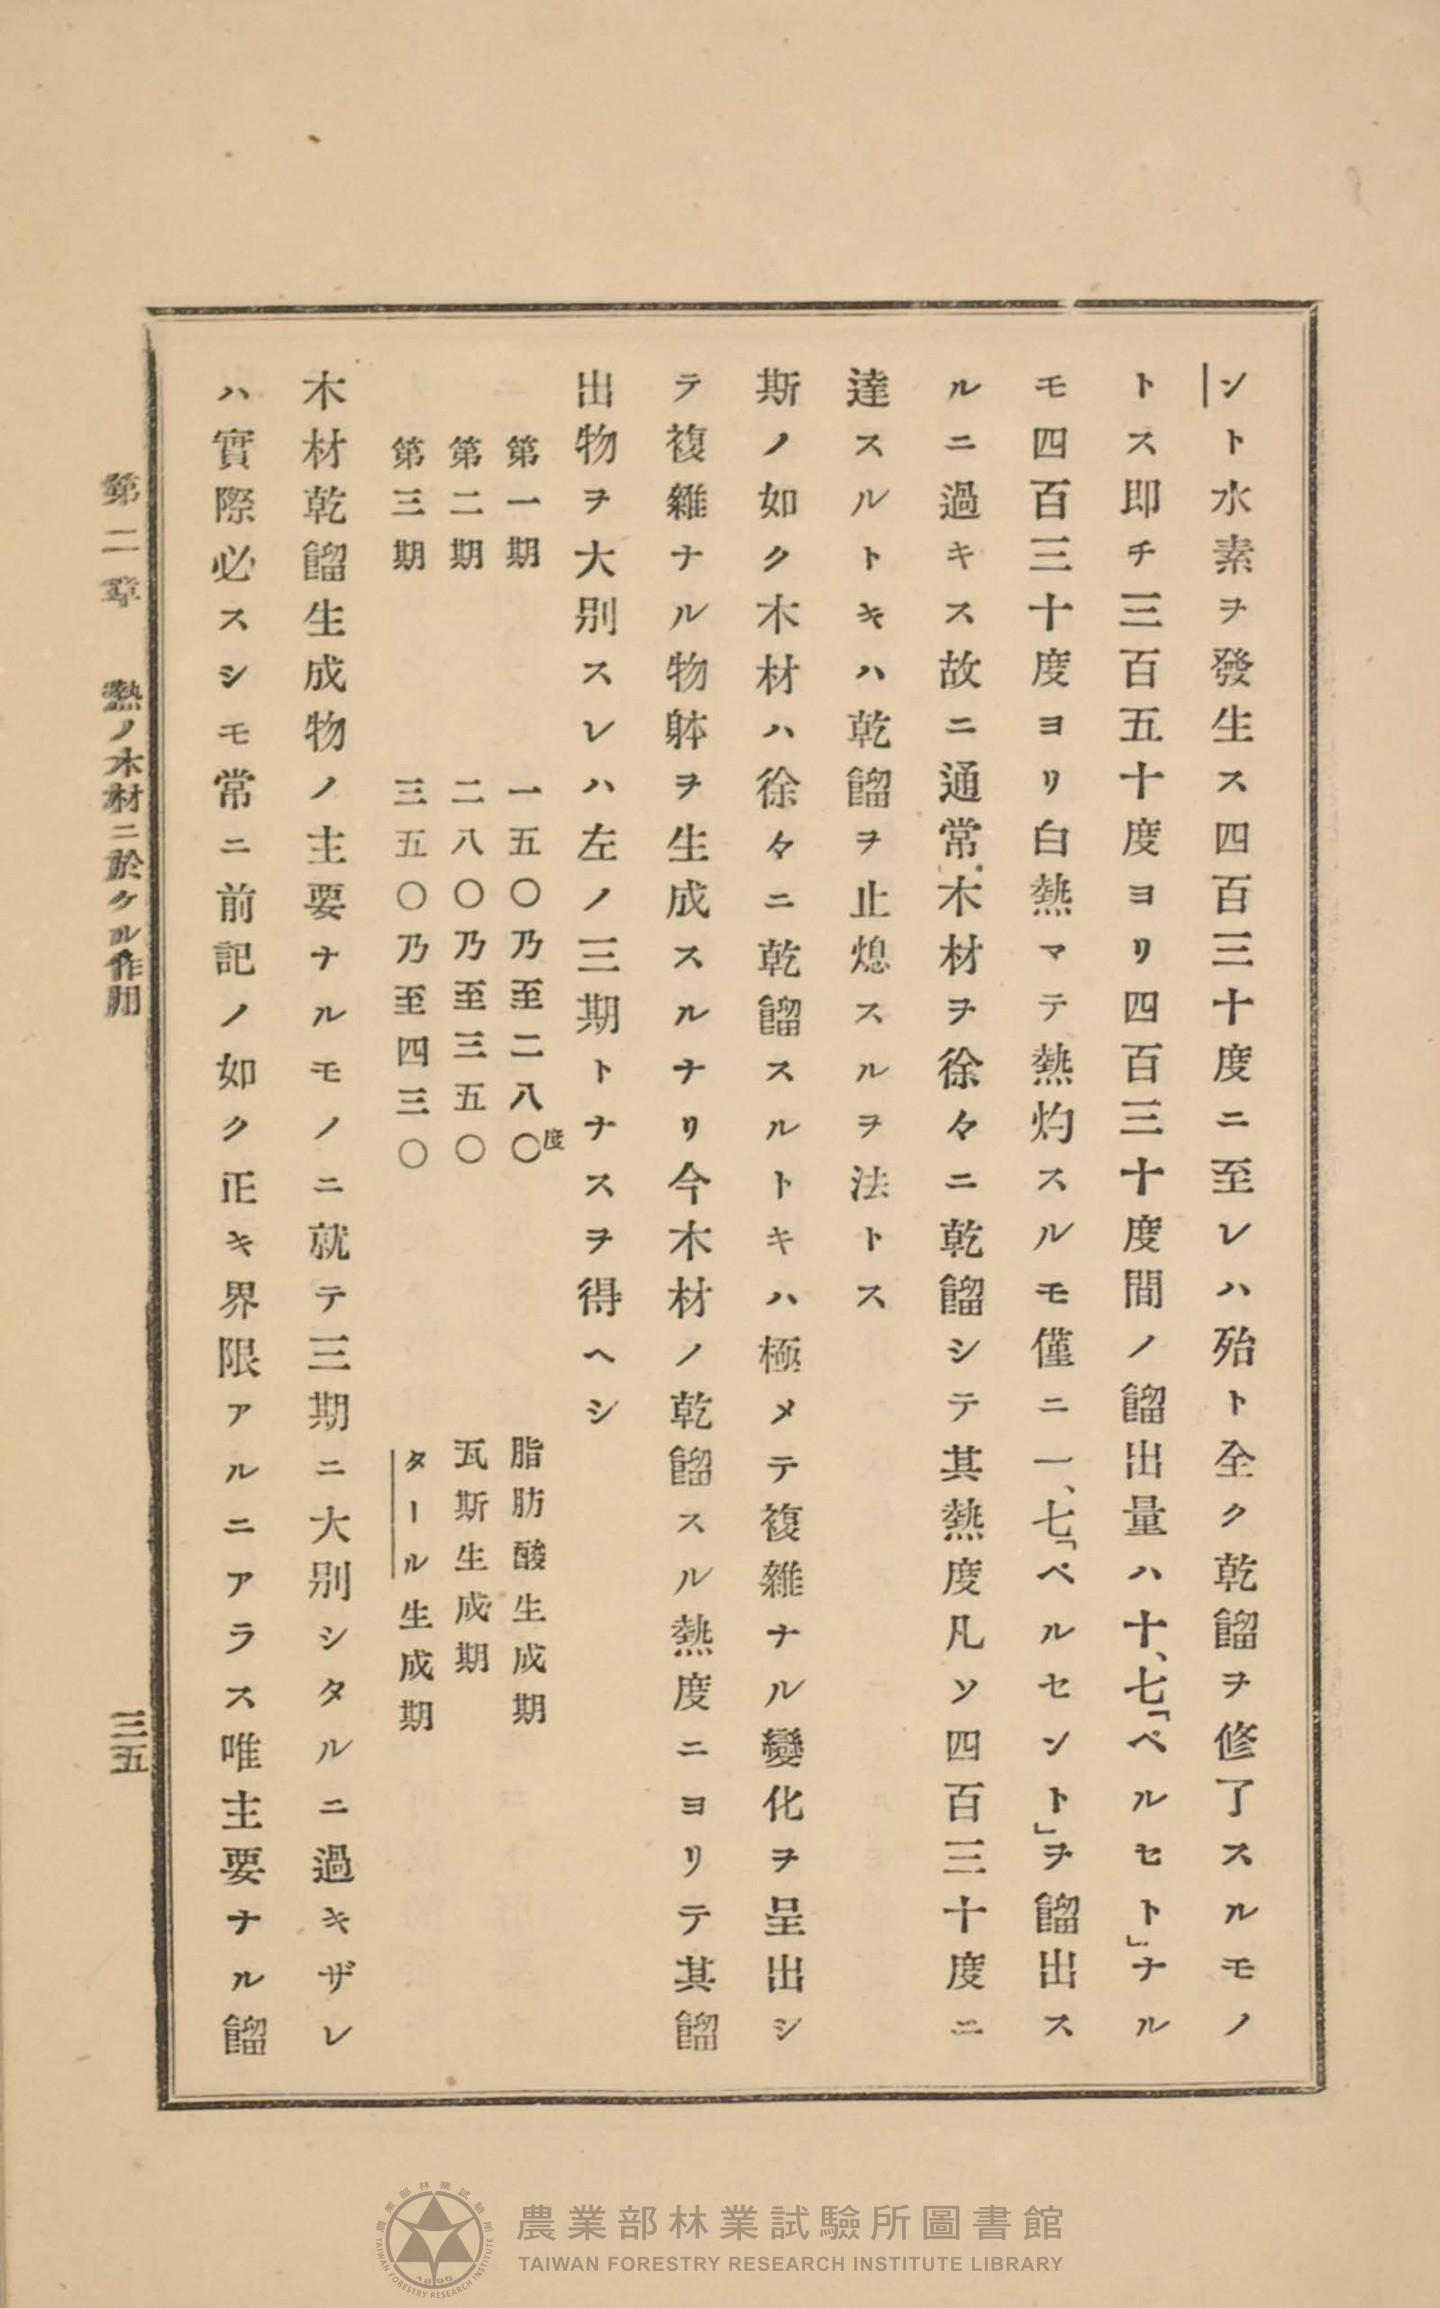 ント水素ヲ發生ス四百三十度ニ至レハ殆ト全ク乾餾ヲ修了スルモノ
トス即チ三百五十度ヨリ四百三十度間ノ餾出量ハ十、七「ペルセト」ナル
モ四百三十度ヨリ白熱マテ熱灼スルモ僅ニ一、七「ペルセント」ヲ餾出ス
ルニ過キス故ニ通常木材ヲ徐々ニ乾餾シテ其熱度凡ソ四百三十度ニ
達スルトキハ乾餾ヲ止熄スルヲ法トス
斯ノ如ク木材ハ徐々ニ乾餾スルトキハ極メテ複雜ナル變化ヲ呈出シ
テ複雜ナル物躰ヲ生成スルナリ今木材ノ乾餾スル熱度ニヨリテ其餾
出物ヲ大別スレハ左ノ三期トナスヲ得ヘシ
第一期 一五〇乃至二八〇度 脂肪酸生成期
第二期 二八〇乃至三五〇 瓦斯生成期
第三期 三五〇乃至四三〇 タール生成期
木材乾餾生成物ノ主要ナルモノニ就テ三期ニ大別シタルニ過キザレ
ハ實際必スシモ常ニ前記ノ如ク正キ界限アルニアラス唯主要ナル餾
第二章 熱ノ木材ニ於ケル作用 三五
農業部林業試驗所圖書館
TAIWAN FORESTRY RESEARCH INSTITUTE LIBRARY
農業部林業試驗所
TAIWAN FORESTRY RESEARCH INSTITUTE
1896